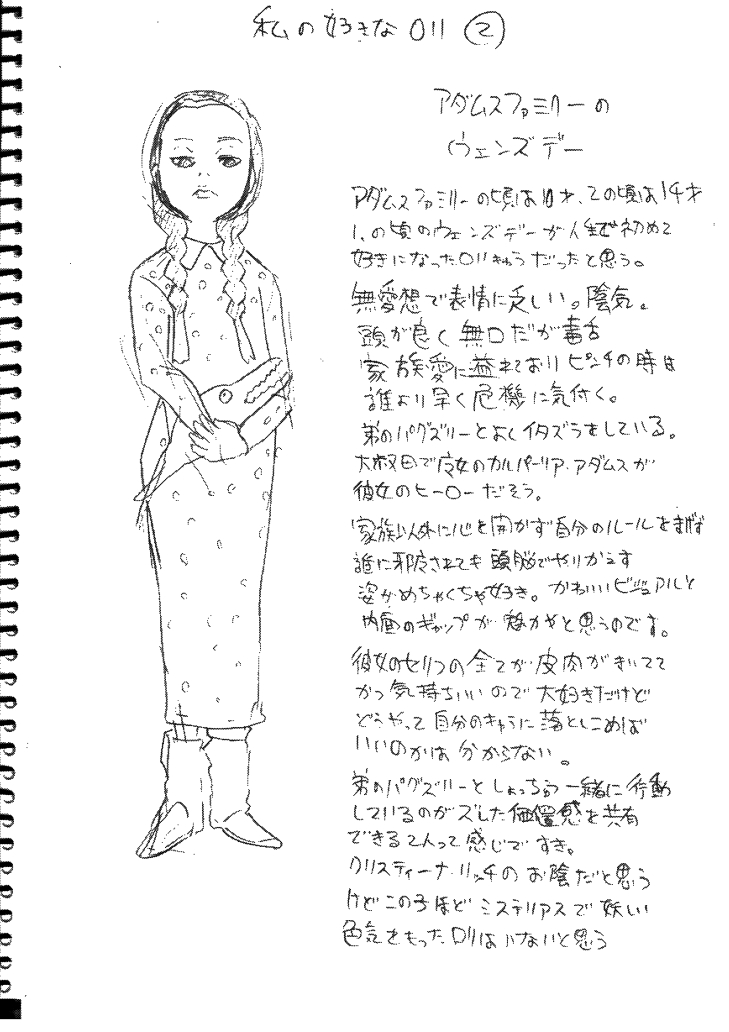 私の好きなロリ ②
アダムスファミリーの
ウェンズデー
アダムスファミリーの頃は10才、2の頃は14才
1、の頃のウェンズデーが人生で初めて
好きになったロリキャラだったと思う。
無愛想で表情に乏しい。陰気。
頭が良く無口だが毒舌
家族愛に溢れておりピンチの時は
誰より早く危機に気付く。
弟のパグズリーとよくイタズラをしている。
大叔母で魔女のカルパーリア・アダムスが
彼女のヒーローだそう。
家族以外に心を開かず自分のルールをまげず
誰に邪魔されても頭脳でやりかえす
姿がめちゃくちゃ好き。かわいいビジュアルと
内面のギャップが魅力やと思うのです。
彼女のセリフの全てが皮肉がきいてて
かつ気持ちいいので大好きだけど
どうやって自分のキャラに落としこめば
いいのかは分からない。
弟のパグズリーとしょっちゅう一緒に行動
しているのがズレた価値感を共有
できる2人って感じですき。
クリスティーナ・リッチのお陰だと思う
けどこの子ほどミステリアスで妖しい
色気をもったロリはいないと思う